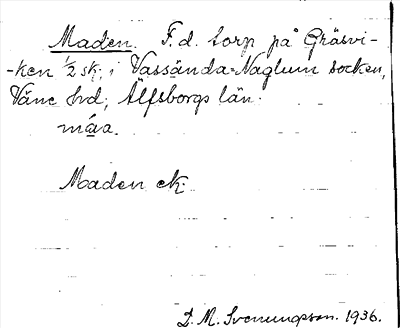 Maden. F.d. torp på Gräsvi-
-ken 1/2 sk. i Vassända-Naglum socken,
Väne hd, Älfsborgs län.
máa.
Maden ek.
D. M. Svenungsson. 1936.